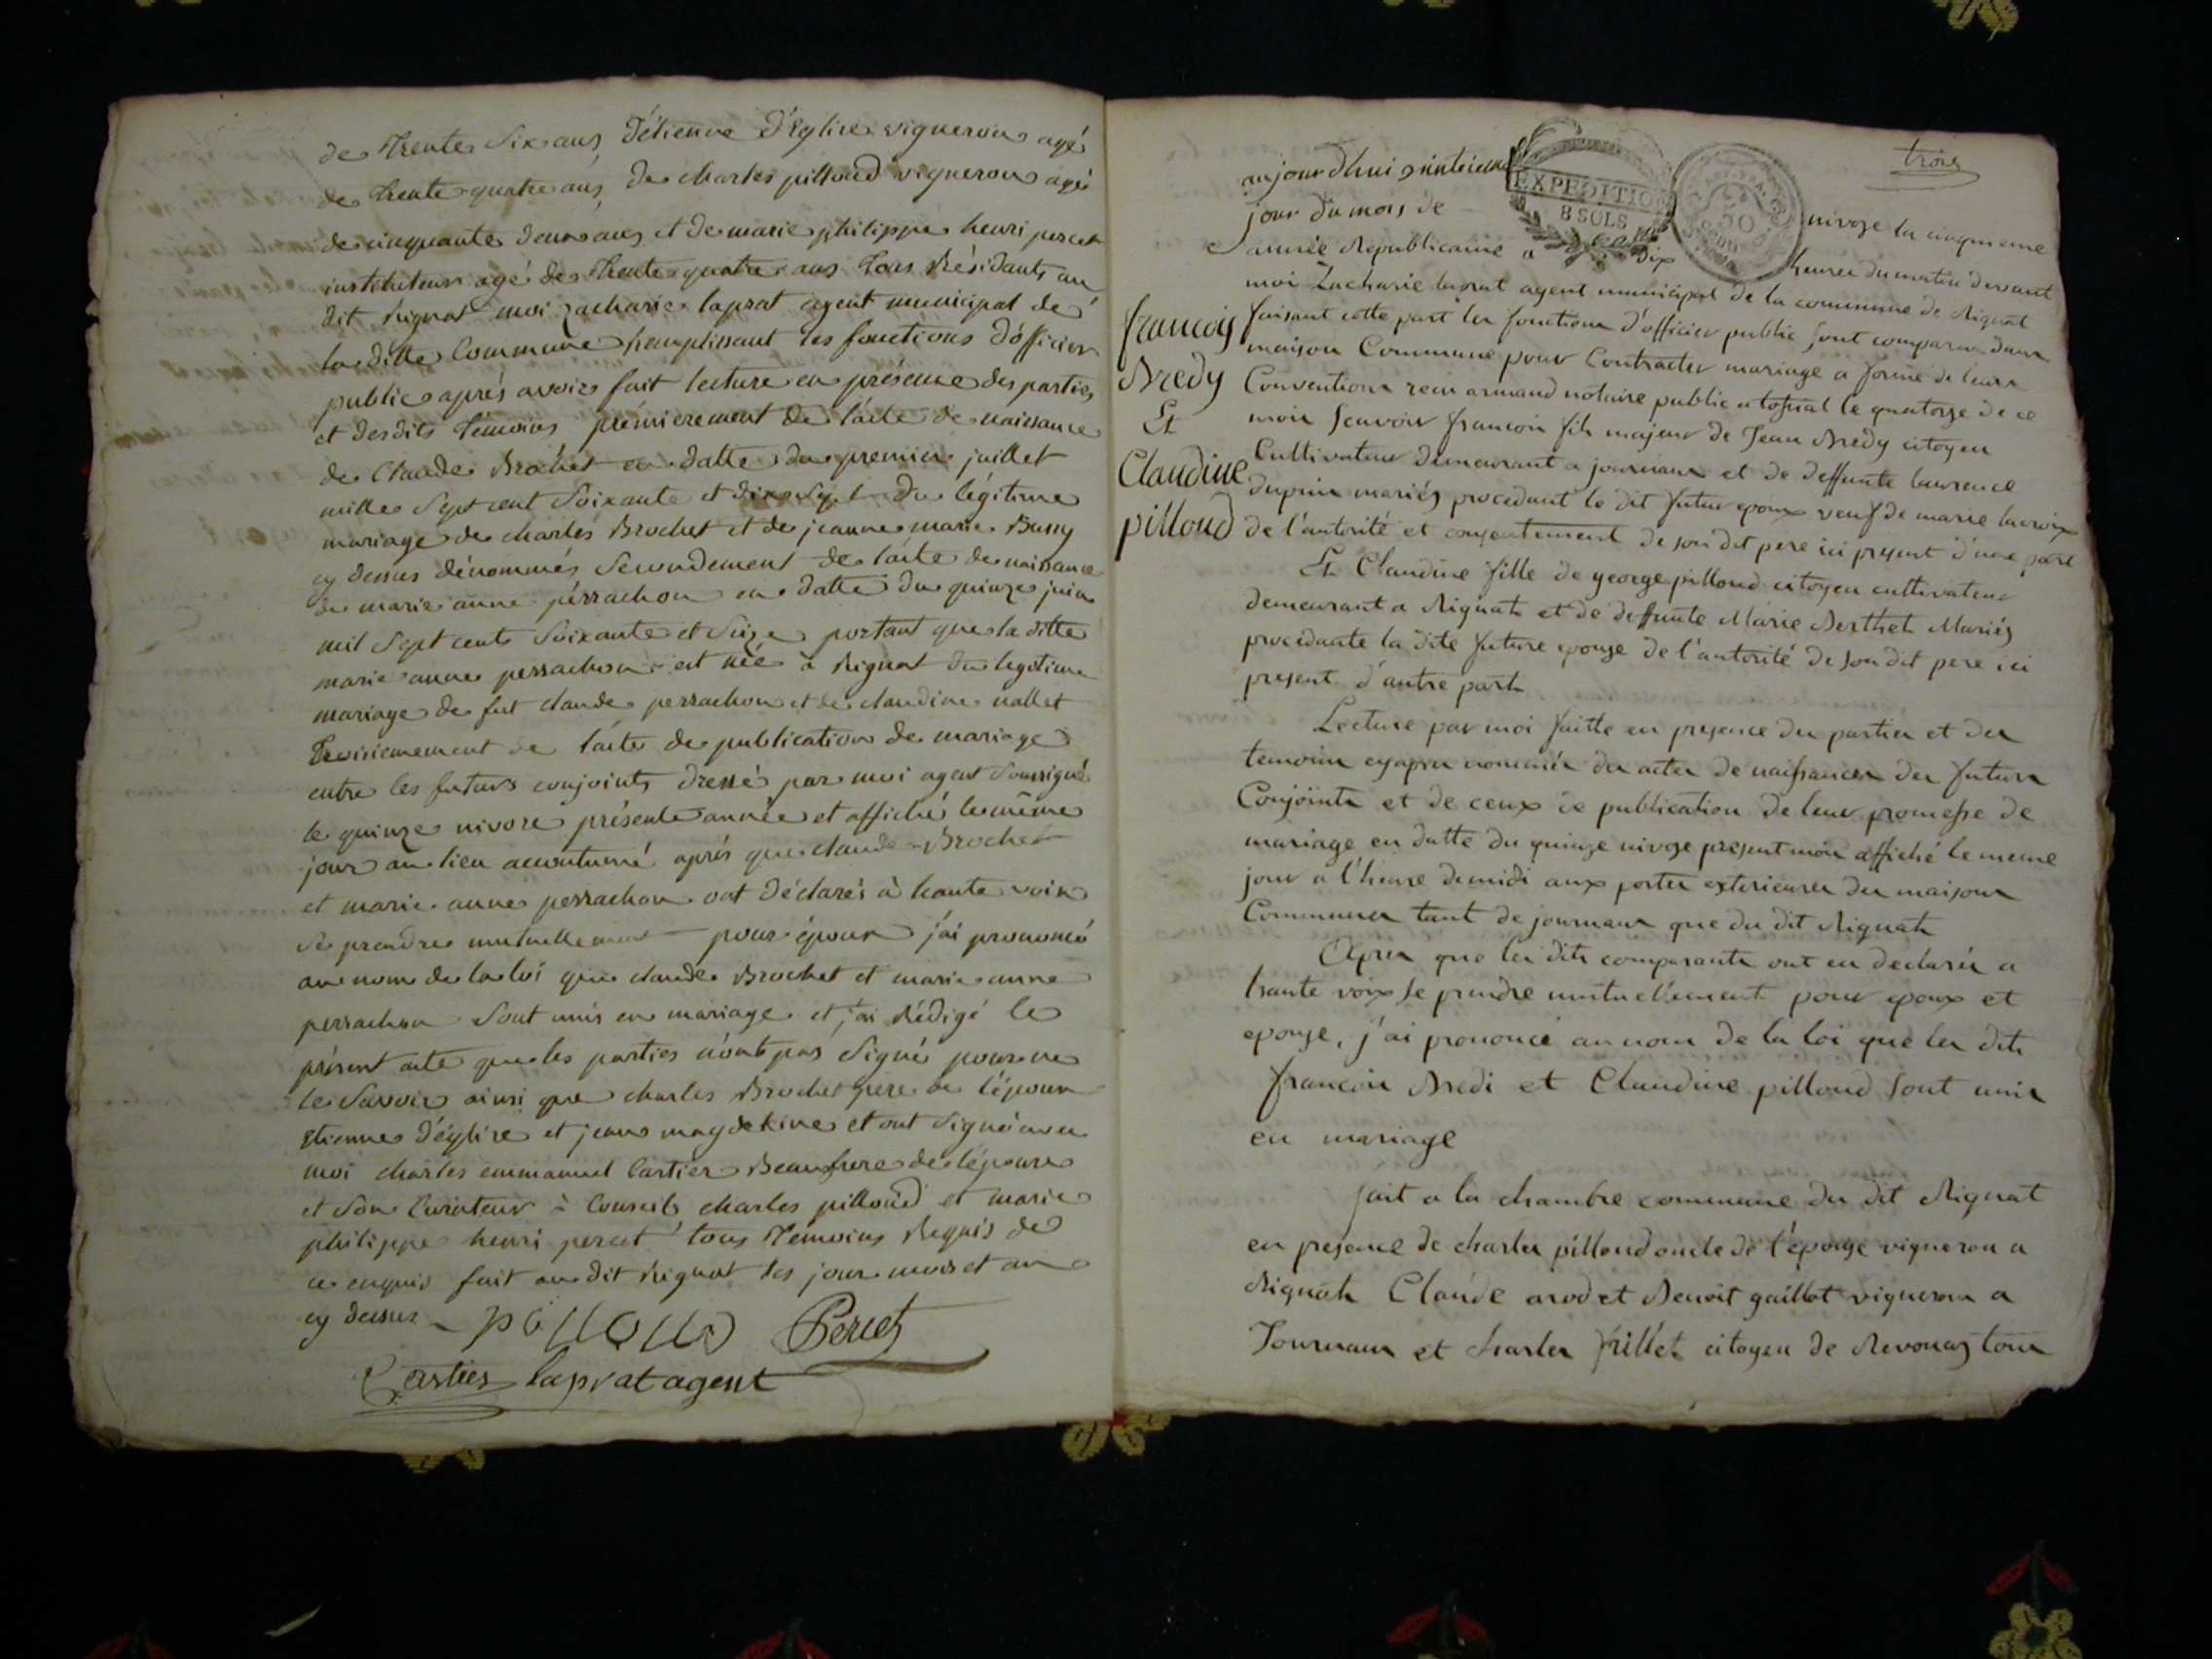 de Trente Six ans, d'étienne d'Eglise vigneron agé
de trente quatre ans, de charles pilloud vigneron agé
de cinquante deux ans et de marie philippe henri percet
instituteur agé de Trente quatre ans tous Résidants au
dit Rignat moi zacharie laprat agent municipal de
la ditte Commune remplissant les fonctions d'officier
public après avoir fait lecture en présence des parties
et desdits témoins premierement de l'acte de naissance
de Claude Brochet en datte du premier juillet
mille Sept cent Soixante et dix Sept du légitime
mariage de charles Brochet et de jeanne marie Buny
cy dessus dénommés Secondement de l'acte de naissance
de marie anne perrachon en datte du quinze juin
mil Sept cents Soixante et Seize portant que la ditte
marie anne perrachon est née à Rignat du legitime
mariage de fut claude perrachon et de claudine nallet
Troisiemement de l'acte de publication de mariage
entre les futurs conjoints dressé par moi agent Soussigné
le quinze nivose présente année et affiché le même
jour au lieu accoutumé après que claude Brochet
et marie anne perrachon ont déclarés à haute voix
Se prendre mutuellement pour époux j'ai prononcé
au nom de la loi que claude Brochet et marie anne
perrachon Sont unis en mariage et j'ai Rédigé le
présent acte que les parties n'ont pas Signé pour ne
le Savoir ainsi que charles Brochet pere de l'époux
Etienne d'église et jean et ont Signé avec
moi charles emmanuel Cartier Beaufrere de l'épouse
et Son Curateur à Conseils charles pilloud et marie
philippe henri percet tous Témoins Requis de
ce enquis fait au dit Rignat les jour mois et an
cy dessus pilloud Percet
Cartier laprat agent
trois
aujourd'hui vintieme
EXPEDITION
8 SOLS
50
jour du mois de nivoze la cinquieme
année Republicaine a dix heures du matin devant
moi Zacharie laprat agent municipal de la commune de Rignat
faisant cette part les fonctions d'officier public sont comparus dans
maison Commune pour Contracter mariage a forme de leurs
Conventions recu armand notaire public a tossiat le quatorze de ce
mois Scavoir francois fils majeur de Jean Bredy citoyen
Cultivateur demeurant a journans et de deffunte laurence
dupuis mariés procedant le dit futur epoux veuf de marie lacroix
de l'autorité et consentement de son dit pere ici present d'une part
francois
Bredy
Et
Claudine
pilloud
Et Claudine fille de george pilloud citoyen cultivateur
demeurant a Rignat et de deffunte Marie Berthet Mariés
procedante la dite future epouze de l'autorité de son dit pere ici
present d'autre part
Lecture par moi faitte en presence des parties et des
temoins cyapres nommés des actes de naissances des futurs
Conjoints et de ceux de publication de leur promesse de
mariage en datte du quinze nivoze present mois affiché le meme
jour a l'heure de midi aux portes exterieures des maisons
Communes tant de journans que du dit Rignat
Apres que les dits comparants ont eu declarés a
haute voix se prendre mutuellement pour epoux et
epouze, j'ai prononcé au nom de la loi que les dits
francois Bredi et Claudine pilloud sont unis
en mariage
fait a la chambre commune du dit Rignat
en presence de charles pilloud oncle de l'épouze vigneron a
Rignat Claude arod et Benoit gaillot vignerons a
Journans et charles frillet citoyen de Revonas tous